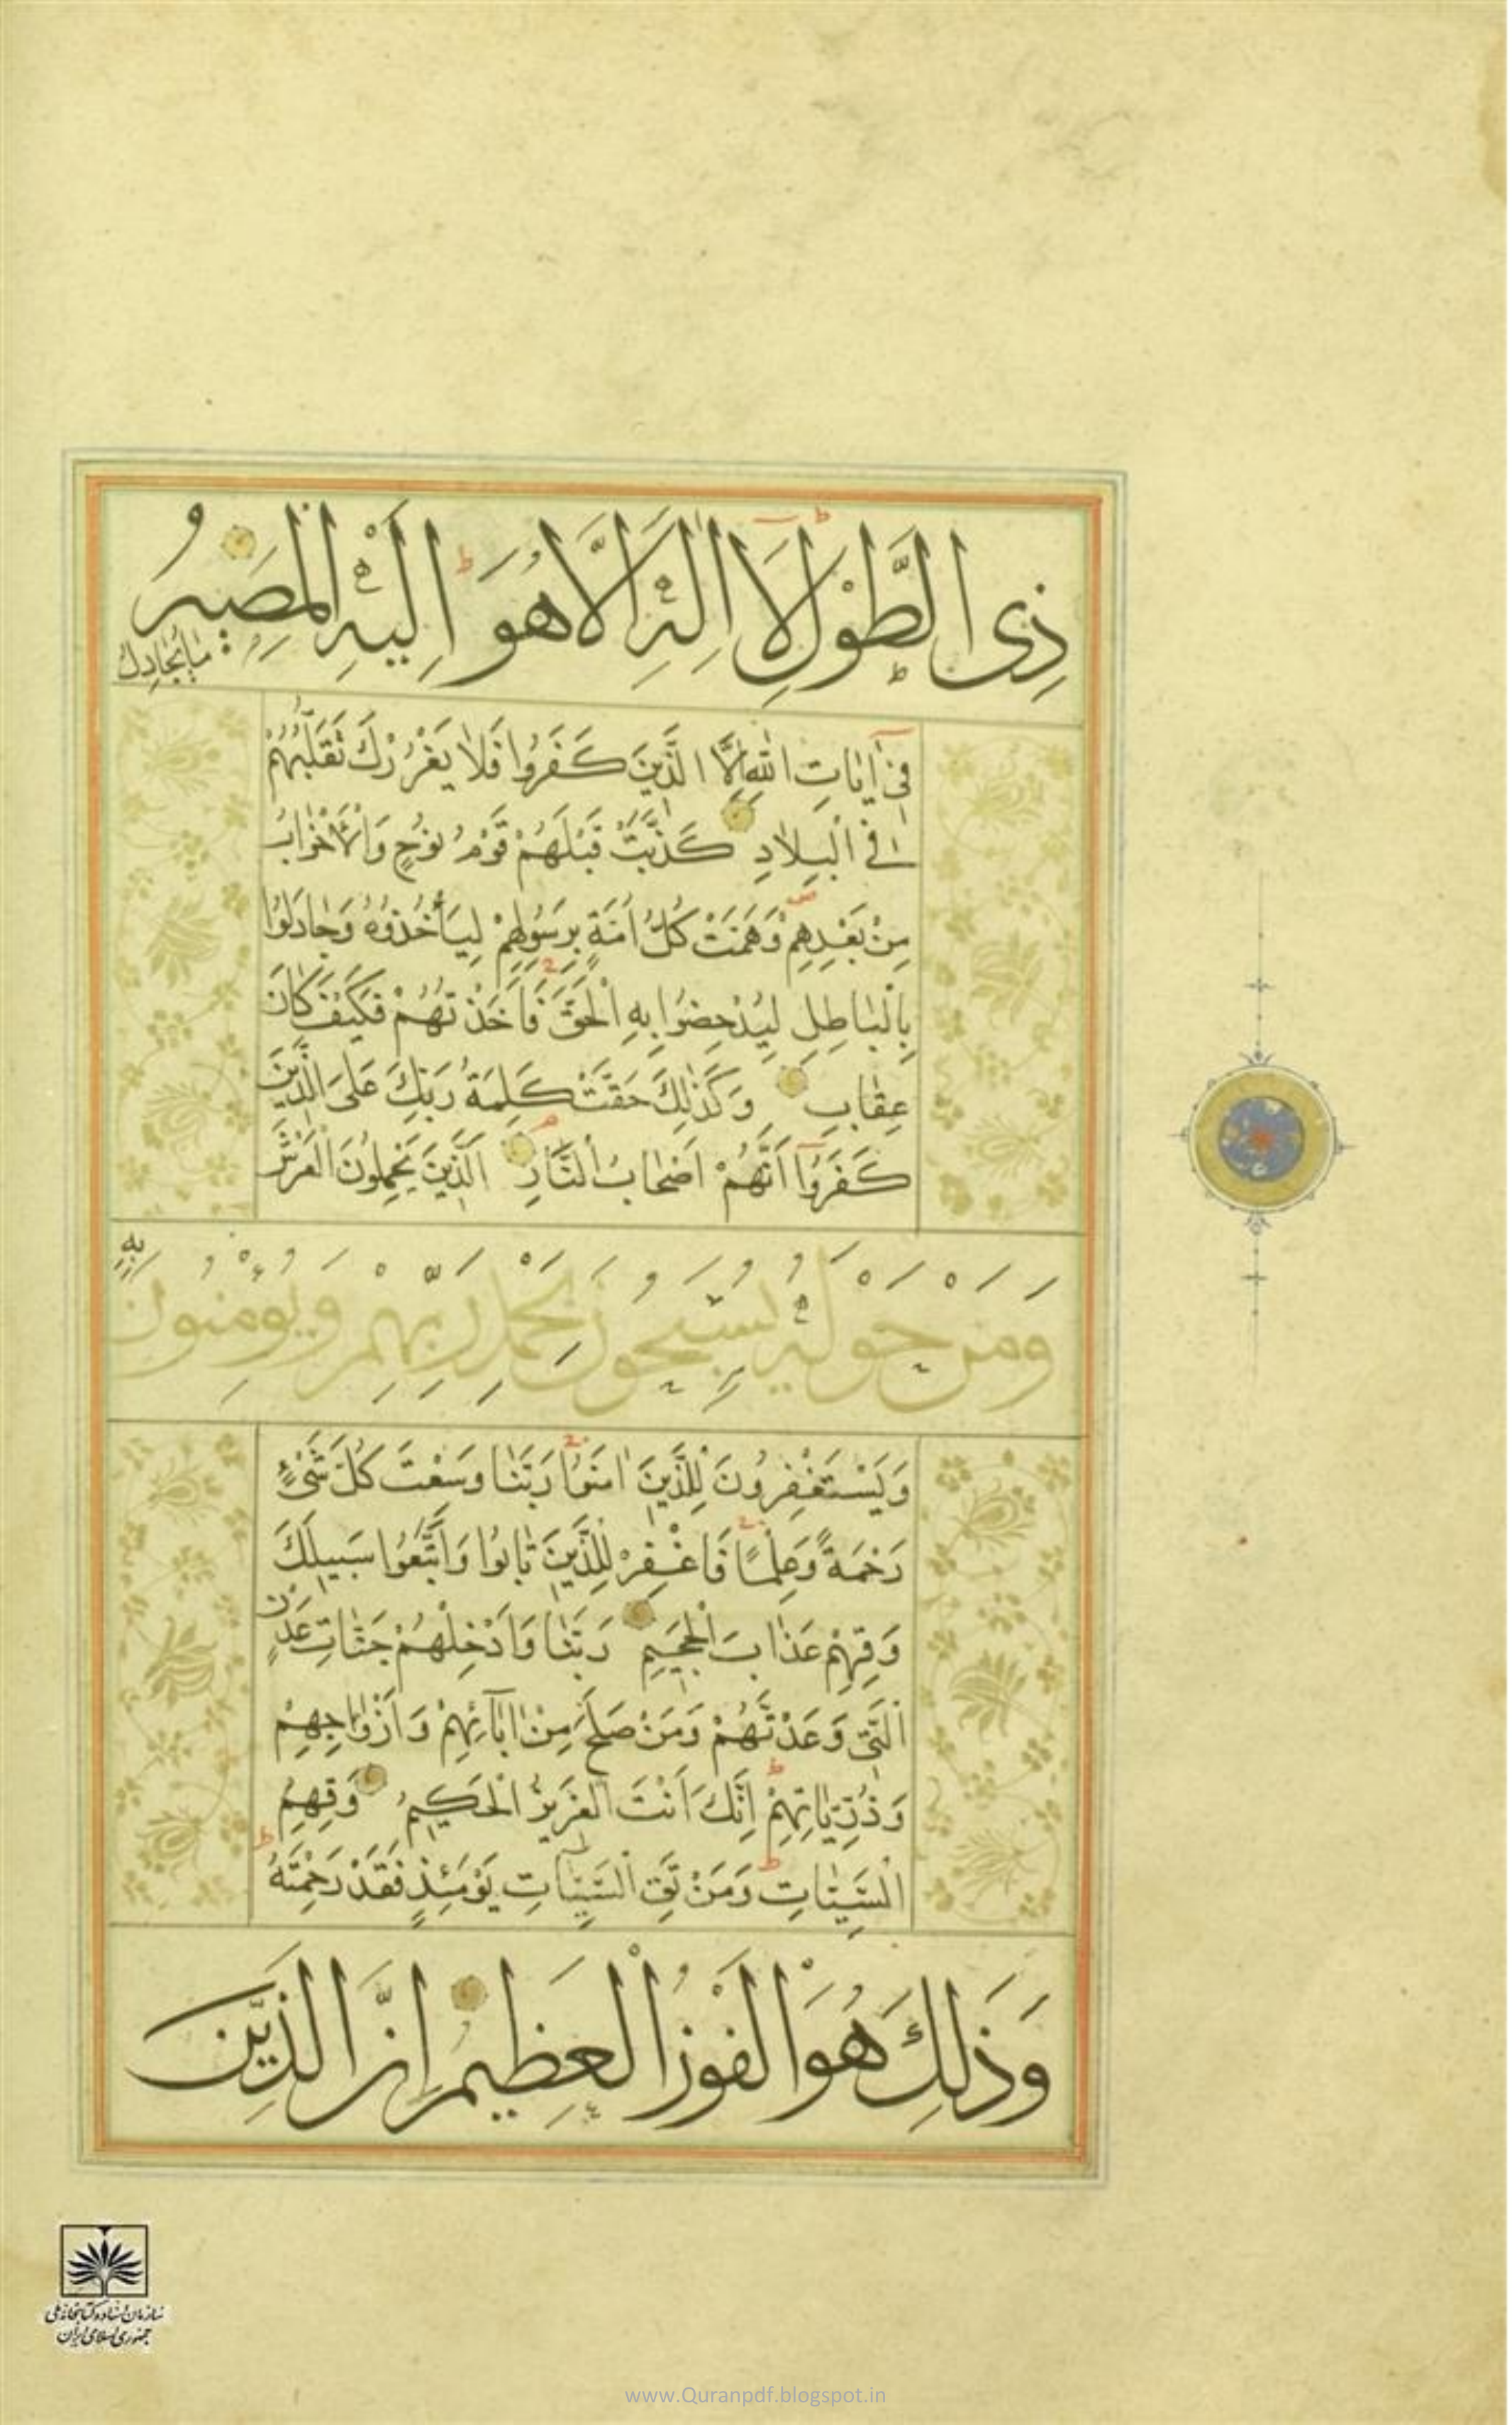 ذِى الطَّوْلِ لَا اِلٰهَ اِلَّا هُوَ اِلَيْهِ الْمَصِيرُ
مَا يُجَادِلُ
فِىٓ اٰيَاتِ اللّٰهِ اِلَّا الَّذِينَ كَفَرُوا فَلَا يَغْرُرْكَ تَقَلُّبُهُمْ
فِى الْبِلَادِ كَذَّبَتْ قَبْلَهُمْ قَوْمُ نُوحٍ وَالْاَحْزَابُ
مِنْ بَعْدِهِمْ وَهَمَّتْ كُلُّ اُمَّةٍ بِرَسُولِهِمْ لِيَأْخُذُوهُ وَجَادَلُوا
بِالْبَاطِلِ لِيُدْحِضُوا بِهِ الْحَقَّ فَاَخَذْتُهُمْ فَكَيْفَ كَانَ
عِقَابِ وَكَذٰلِكَ حَقَّتْ كَلِمَةُ رَبِّكَ عَلَى الَّذِينَ
كَفَرُوٓا اَنَّهُمْ اَصْحَابُ النَّارِ اَلَّذِينَ يَحْمِلُونَ الْعَرْشَ
وَمَنْ حَوْلَهُ يُسَبِّحُونَ بِحَمْدِ رَبِّهِمْ وَيُؤْمِنُونَ
بِهِ
وَيَسْتَغْفِرُونَ لِلَّذِينَ اٰمَنُوا رَبَّنَا وَسِعْتَ كُلَّ شَىْءٍ
رَحْمَةً وَعِلْمًا فَاغْفِرْ لِلَّذِينَ تَابُوا وَاتَّبَعُوا سَبِيلَكَ
وَقِهِمْ عَذَابَ الْجَحِيمِ رَبَّنَا وَاَدْخِلْهُمْ جَنَّاتِ عَدْنٍ
الَّتِى وَعَدْتَهُمْ وَمَنْ صَلَحَ مِنْ اٰبَآئِهِمْ وَاَزْوَاجِهِمْ
وَذُرِّيَّاتِهِمْ اِنَّكَ اَنْتَ الْعَزِيزُ الْحَكِيمُ وَقِهِمُ
السَّيِّئَاتِ وَمَنْ تَقِ السَّيِّئَاتِ يَوْمَئِذٍ فَقَدْ رَحِمْتَهُ
وَذٰلِكَ هُوَ الْفَوْزُ الْعَظِيمُ اِنَّ الَّذِينَ
سازمان اسناد و کتابخانه ملی
جمهوری اسلامی ایران
www.Quranpdf.blogspot.in